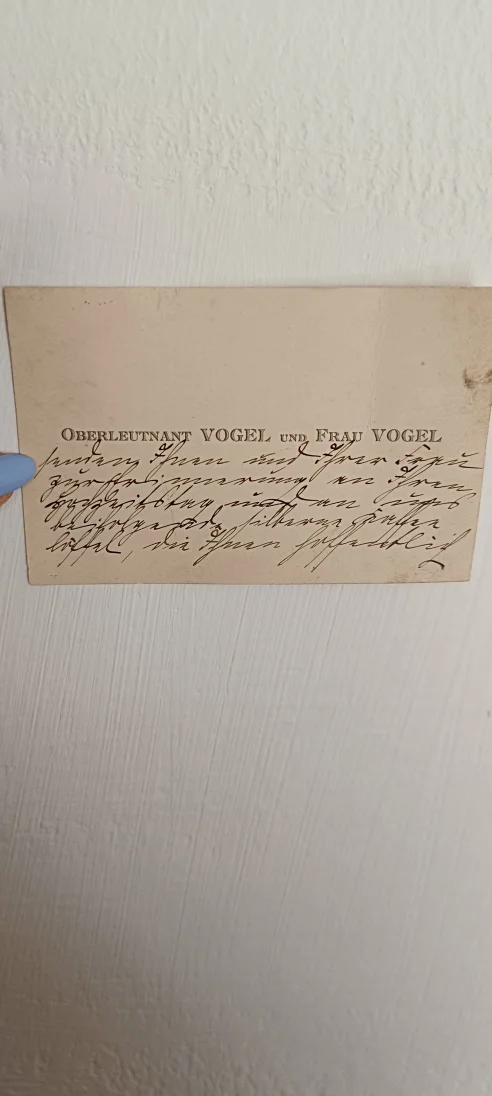 OBERLEUTNANT VOGEL UND FRAU VOGEL
senden Ihnen und Ihrer Frau
zur Erinnerung an Ihren
Hochzeitstag und an uns
beifolgende silberne Kaffee
löffel, die Ihnen hoffentlich